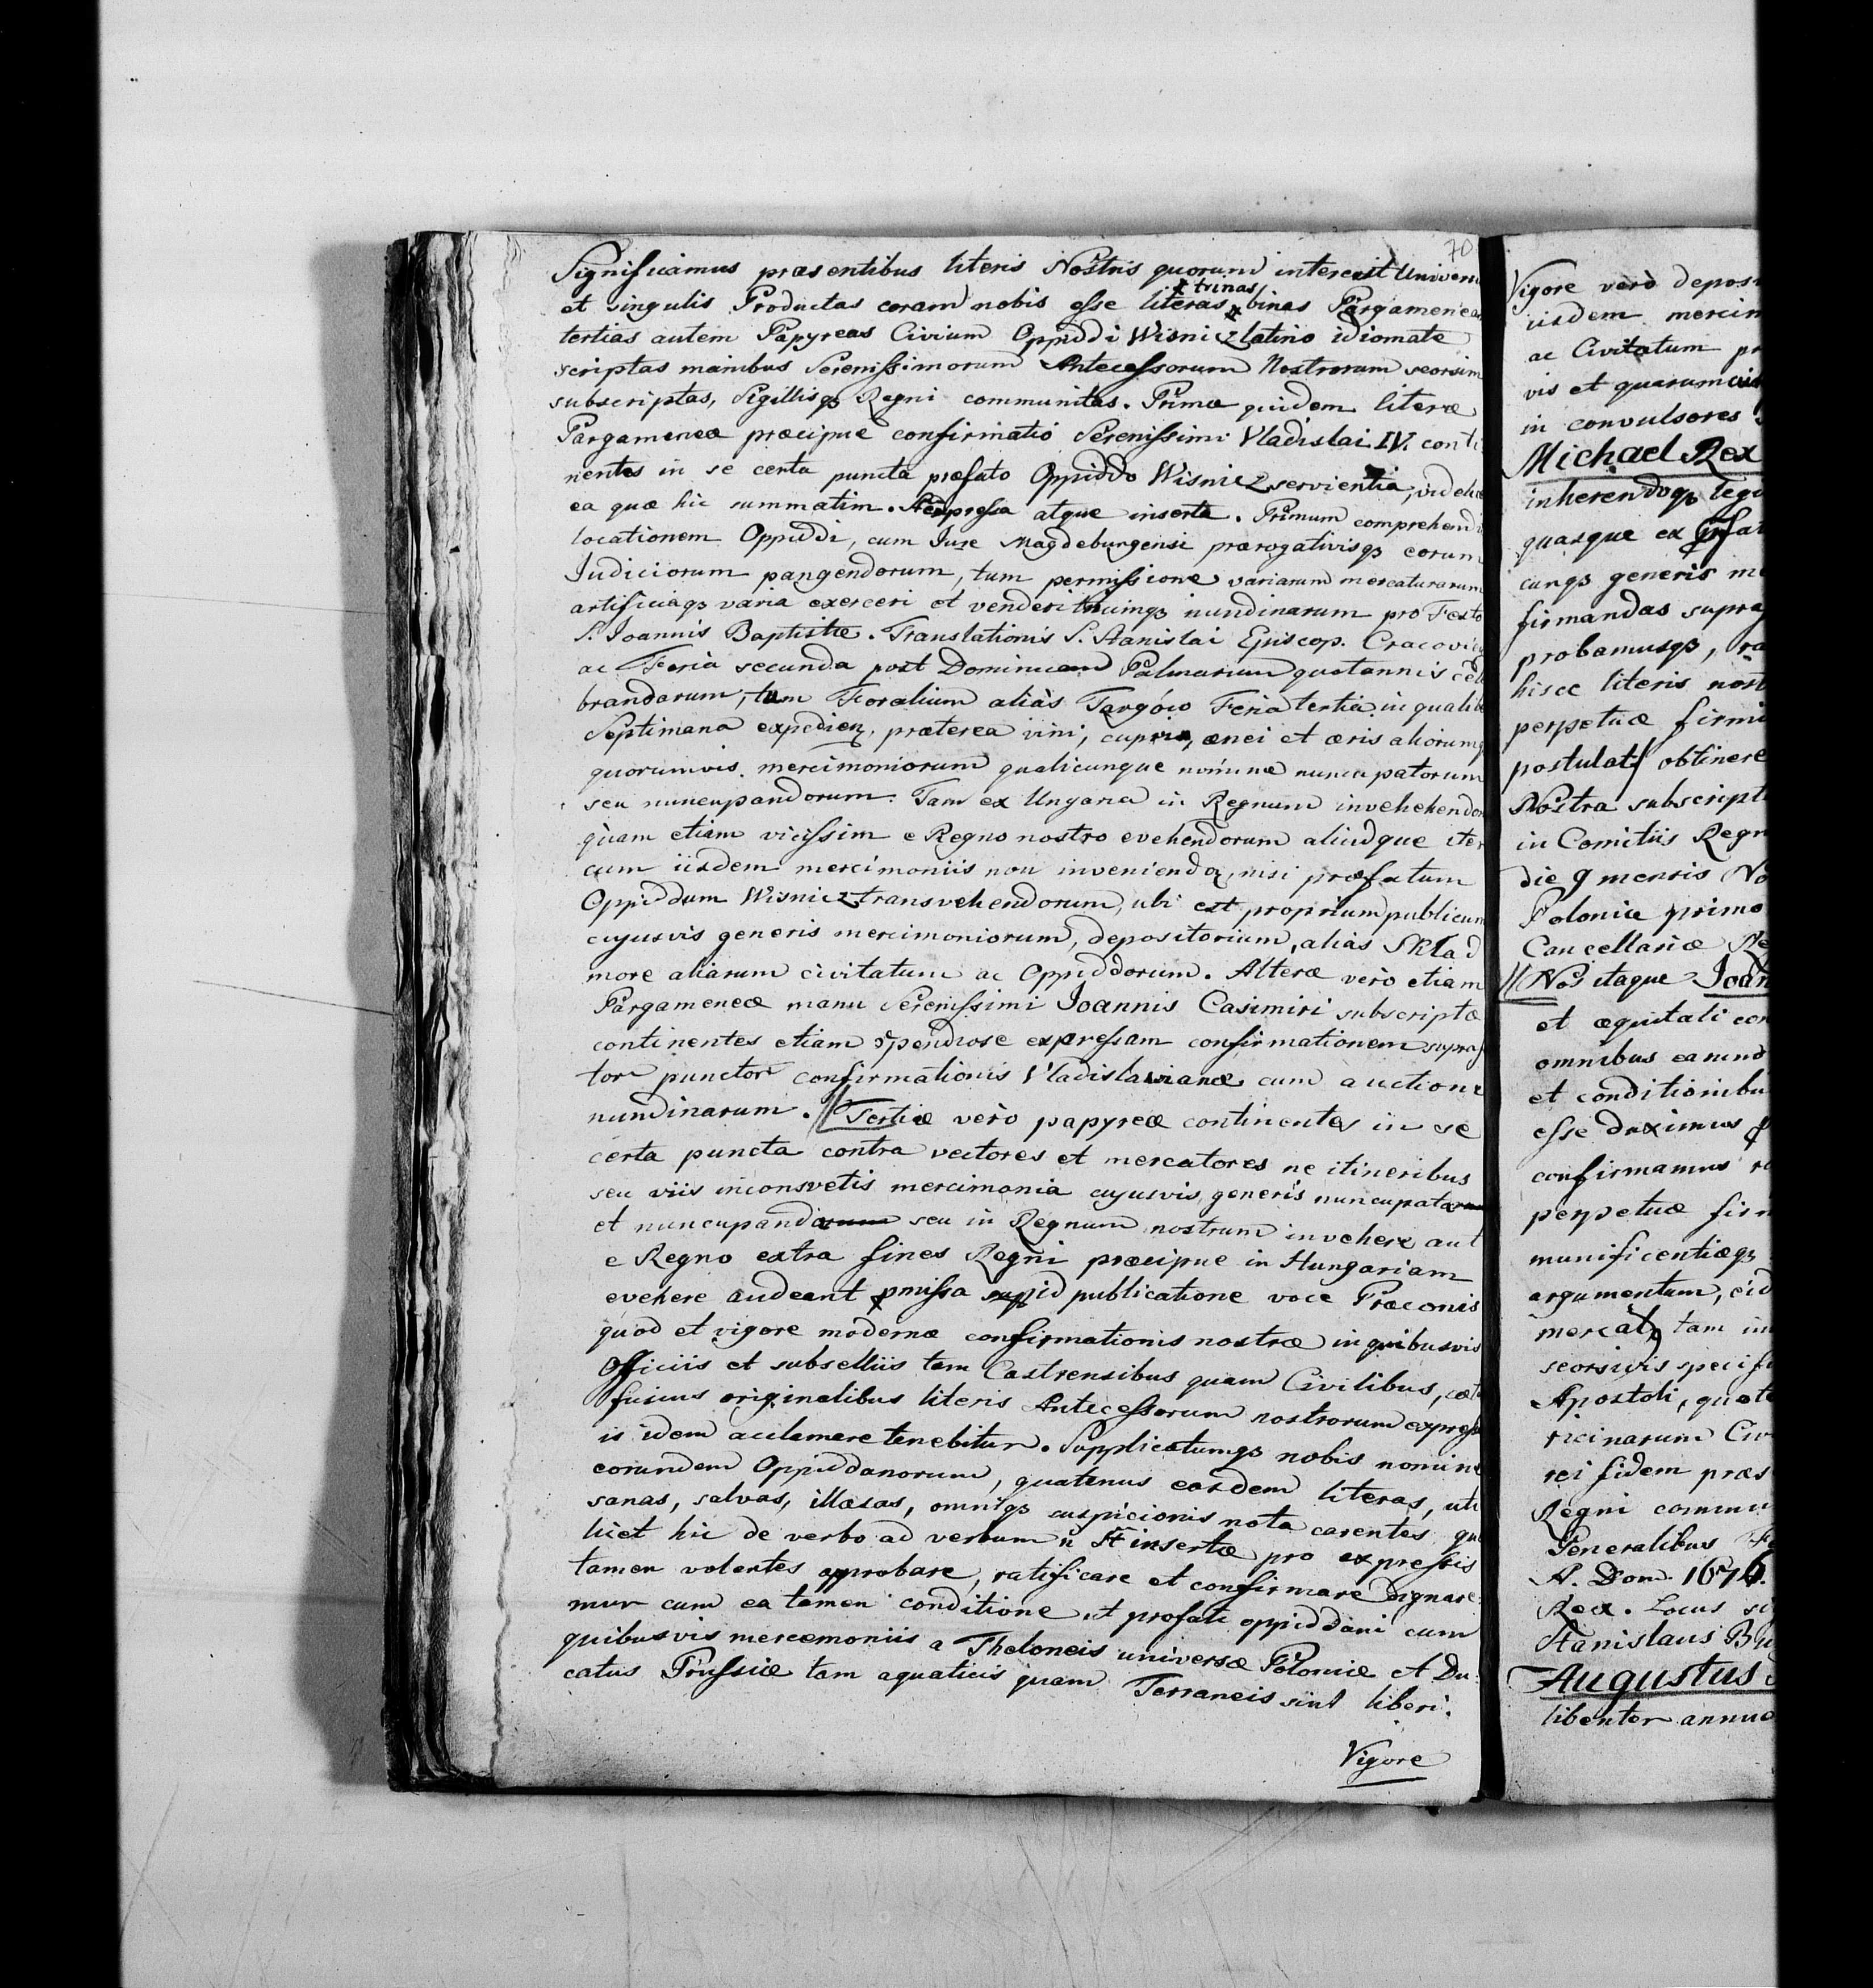 70
Significamus præsentibus literis Nostris quorum interest Univers
trinas
et singulis Productas coram nobis esse literas binas Pargameneas
tertias autem Papyreas Civium Oppiddi Wisnicz latino idiomate
scriptas manibus Serenissimorum Antecessorum Nostrorum seorsim
subscriptas, Sigillisqz Regni communitas. Primæ quidem literæ
Pargameneæ præcipue confirmatió Serenissimi Vladislai IV. conti
nentes in se certa puncta præfato Oppiddo Wisnicz servientia, videlic
ea quæ hic summatim expressa atque inserta. Primum comprehend
locationem Oppiddi, cum Jure Magdeburgensi prærogativisqz eorum
Judiciorum pangendorum, tum permissione variarum mercaturarum
artificiaqz varia exerceri et venderi triumqz nundinarum pro Festo
S. Joannis Baptistæ. Translationis S. Stanislai Episcop. Cracovien
ac Feria secunda post Dominicam Palmarum quotannis cele
brandarum, tum Foralium aliàs Targów Feria tertia in qualibe
Septimana expedien, præterea vini, cupri, ænei et æris aliorumq
quorumvis mercimoniorum qualicunque nomine nuncupatorum
seu nuncupandorum. Tam ex Ungaria in Regnum invehehendor
quam etiam vicissim e Regno nostro evehendorum aliudque iter
cum iisdem mercimoniis non inveniendo, nisi præfatum
Oppiddum Wisnicz transvehendorum, ubi est proprium publicum
cujusvis generis mercimoniorum, depositorium, alias Skład
more aliarum civitatum ac Oppiddorum. Alteræ verò etiam
Pargameneæ manu Serenissimi Joannis Casimiri subscriptæ
continentes etiam spendiose expressam confirmationem supraf
tor punctor confirmationis Vladislavianæ cum auctione
nundinarum. // Tertiæ verò papyreæ continentes in se
certa puncta contra vectores et mercatores ne itineribus
seu viis inconsvetis mercimonia cujusvis generis nuncupata
et nuncupanda seu in Regnum nostrum invehere aut
e Regno extra fines Regni præcipue in Hungariam
evehere audeant pmissa publicatione voce Præconis
quod et vigore modernæ confirmationis nostræ in quibusvis
Officiis et subselliis tam Castrensibus quam Civilibus, cæt
fusius originalibus literis Antecessorum nostrorum express
is idem acclamare tenebitur. Supplicatumqz nobis nomine
eorundem Oppiddanorum, quatenus easdem literas, uti
sanas, salvas, illæsas, omniqz suspicionis nota carentes, qu
licet hic de verbo ad verbum ñ st insertæ pro expressis
tamen volentes approbare, ratificare et confirmare dignare
mur cum ea tamen conditione ut præfati oppiddani cum
quibusvis mercemoniis a Theloneis universæ Poloniæ et Du
catus Prussiæ tam aquaticis quam Terraneis sint liberi.
Vigore
Vigore verò depos
iisdem mercim
ac Civitatum pr
vis et quarumcun
in convulsores
Michael Rex
inherendoqz leg
quasque ex pfat
cunqz generis m
firmandas supra
probamusqz, ra
hisce literis nost
perpetuæ firmi
postulat obtinere
Nostra subscript
in Comitiis Regn
die 9 mensis No
Poloniæ primo
Cancellariæ Re
// Nos itaque Joan
et æquitati con
omnibus earund
et conditionibu
esse duximus
confirmamus ra
perpetuæ firm
munificentiæqz
argumentum, eid
mercat tam in
seorsivis specif
Apostoli, quot
ricinarum Civ
rei fidem præs
Regni commu
Generalibus Fe
A. Dom. 1676.
Rex. Locus si
Stanislaus Bu
Augustus
libenter annue